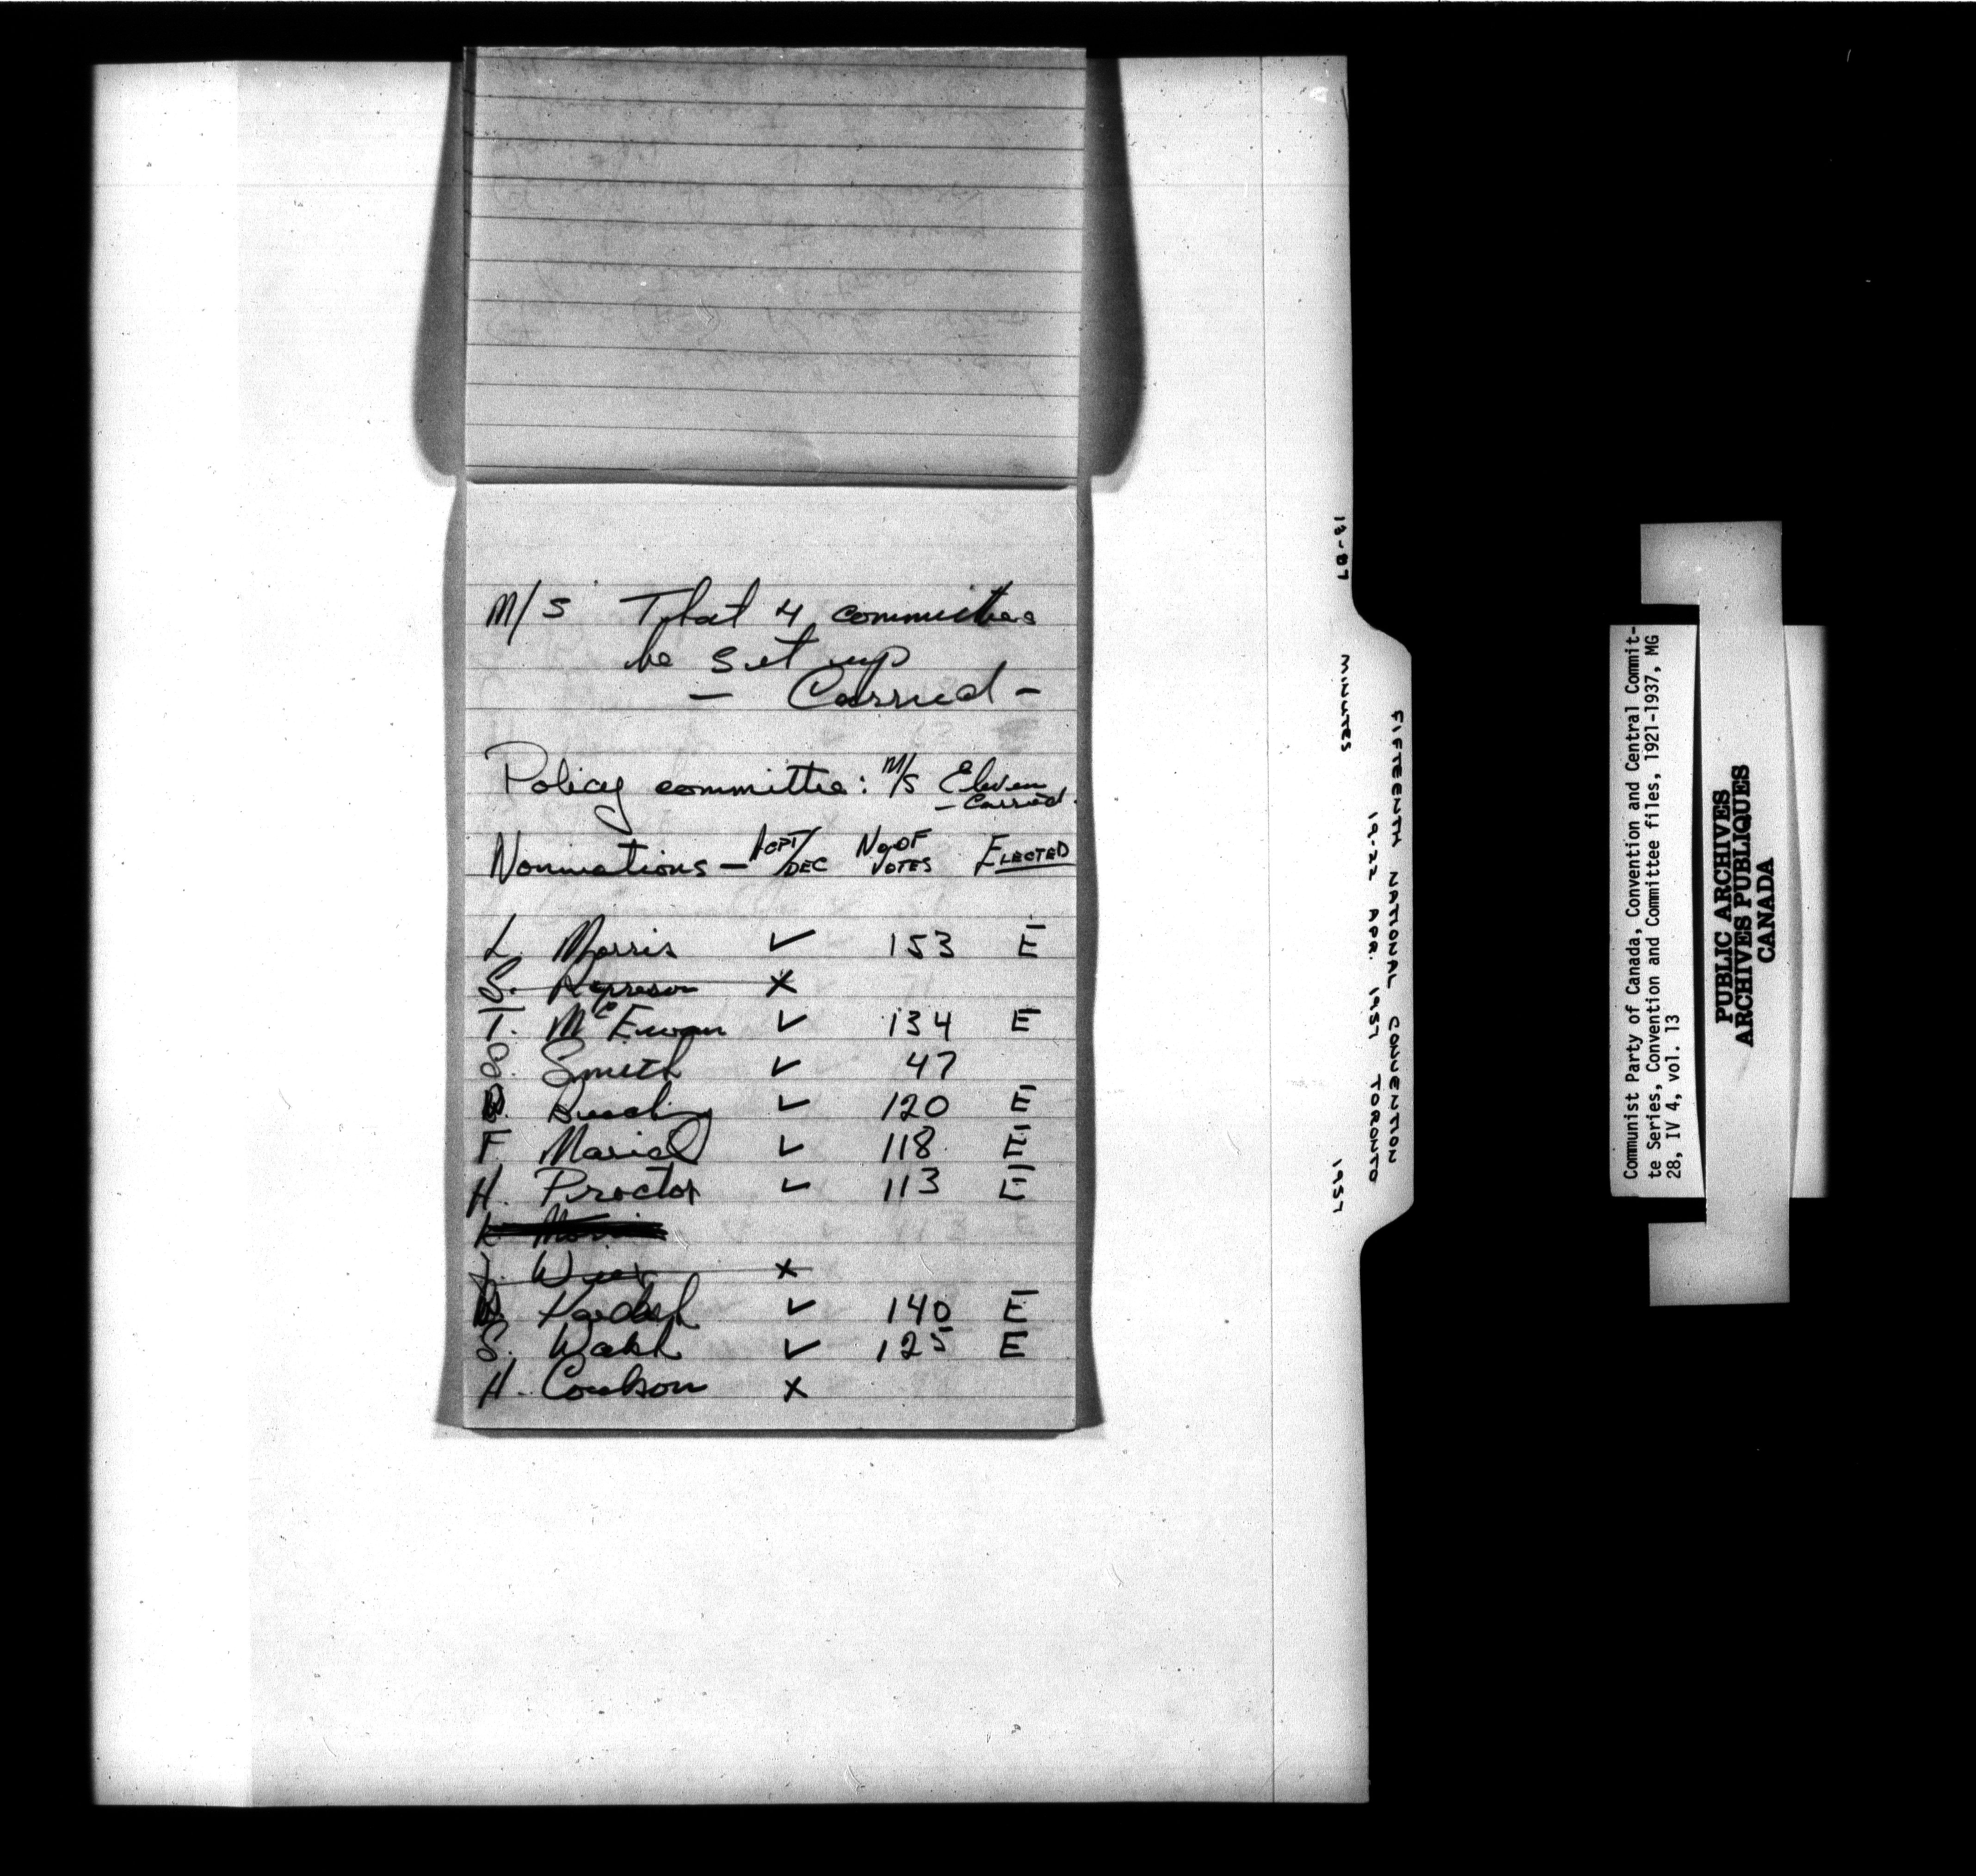 M/S That 4 committees
be set up
- Carried -
Policy committee: M/S Eleven
- Carried.
Nominations - ACPT/DEC No OF VOTES ELECTED
L. Morris ✓ 153 E
S. x
T. McEwan ✓ 134 E
S. Smith ✓ 47
B. ✓ 120 E
F. ✓ 118 E
H. Proctor ✓ 113 E
L. Morris
J. Wier x
✓ 140 E
S. Walsh ✓ 125 E
H. Coulson x
MINUTES 1957
FIFTEENTH NATIONAL CONVENTION
19-22 APR. 1957 TORONTO
Communist Party of Canada, Convention and Central Commit-
te Series, Convention and Committee files, 1921-1937, MG
28, IV 4, vol. 13
PUBLIC ARCHIVES
ARCHIVES PUBLIQUES
CANADA